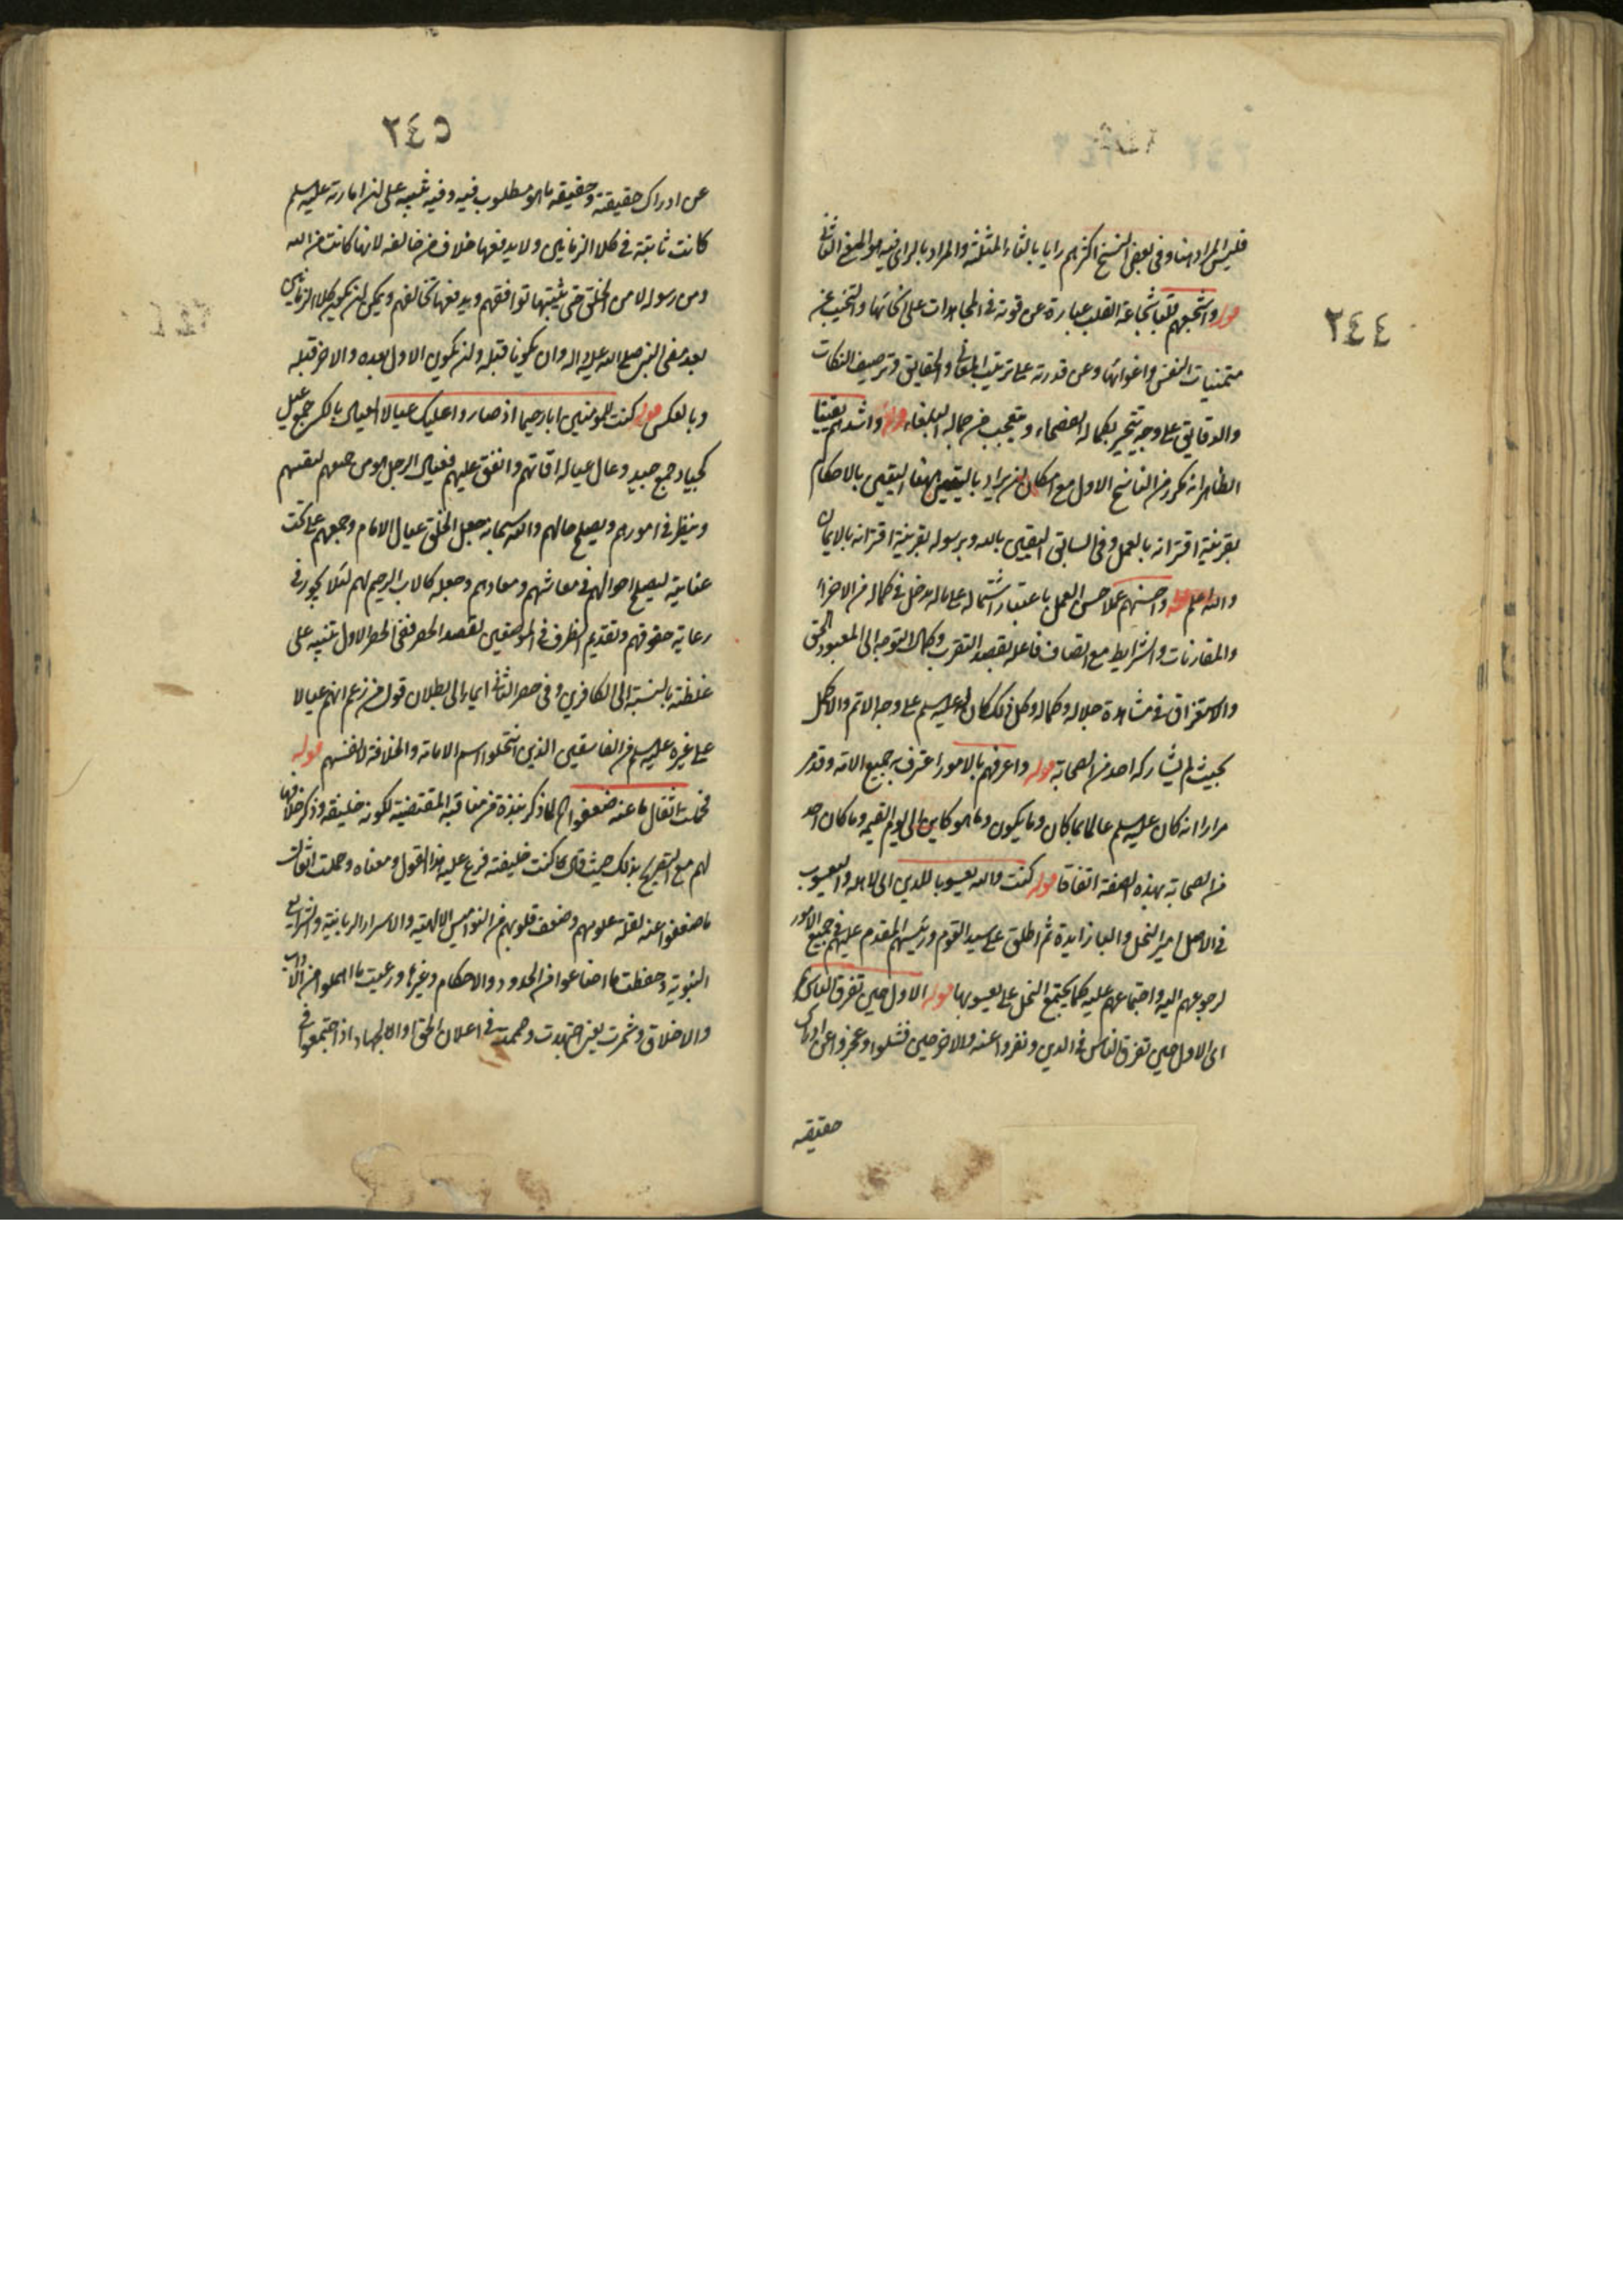 ٢٤٤
فليس المراد هنا وفى بعض النسخ اكثرهم رايا بالثاء المثلثة والمراد بالراى فيه هو المعنى الثانى
قوله واشجعهم قلبا شجاعة القلب عبارة عن قوته فى المجاهدات على انحائها والتجنب عن
متمنيات النفس واغوائها وعن قدرته على ترتيب المعانى والحقايق وترصيف النكات
والدقايق على وجه يتحير بكماله الفصحاء ويتعجب من جماله البلغاء قوله واشدهم يقينا
الظاهر انه تكرر من الناسخ الاول مع امكان ان يراد باليقين هنا اليقين بالاحكام
بقرينة اقترانه بالعمل وفى السابق اليقين بالله وبرسوله بقرينة اقترانه بالايمان
والله اعلم قوله واحسنهم عملا حسن العمل باعتبار اشتماله على ماله مدخل فى كماله من الاجزاء
والمقارنات والشرايط مع اتصاف فاعله بقصد التقرب وكمال التوجه الى المعبود الحق
والاستغراق فى مشاهدة جلاله وكماله وكل ذلك كان له عليه السلم على وجه الاتم والاكمل
بحيث لم يشاركه احد من الصحابة قوله واعرفهم بالامور اعترف به جميع الامة وقد مر
مرارا انه كان عليه السلم عالما بما كان وما يكون وما هو كاين الى يوم القيمة وما كان احد
من الصحابة بهذه الصفة اتفاقا قوله كنت والله يعسوبا للدين اى لاهله واليعسوب
فى الاصل امير النحل والياء زايدة ثم اطلق على سيد القوم ورئيسهم المقدم عليهم فى جميع الامور
لرجوعهم اليه واجتماعهم عليه كما يجتمع النحل على يعسوبها قوله الاول حين تفرق الناس
اى الاول حين تفرق الناس فى الدين ونفروا عنه والاخر حين فشلوا وعجزوا عن ادراك
حقيقه
٢٤٥
عن ادراك حقيقته وحقيقه ما هو مطلوب فيه وفيه تنبيه على ان امارته عليه السلم
كانت ثابتة فى كلا الزمانين ولا يدفعها خلاف من خالفه لانها كانت من الله
ومن رسوله لا من الخلق حتى يثبتها توافقهم ويدفعها تخالفهم ويمكن ان يكون كلا الزمانين
بعد مضى النبى صلى الله عليه واله وان يكونا قبله وان يكون الاول بعده والاخر قبله
وبالعكس قوله كنت للمومنين ابا رحيما اذ صاروا عليك عيالا العيال بالكسر جمع عيل
كجياد جمع جيد وعال عياله اقاتهم وانفق عليهم فعيال الرجل هو من جمعهم ليقيتهم
وينظر فى امورهم ويصلح حالهم والله سبحانه جعل الخلق عيال الامام وجمعهم تحت
عنايته ليصلح احوالهم فى معاشهم ومعادهم وجعله كالاب الرحيم لهم لئلا يجور فى
رعاية حقوقهم وتقديم الظرف فى الموضعين لقصد الحصر ففى الحصر الاول تنبيه على
غلظته بالنسبة الى الكافرين وفى حصر الثانى ايماء الى بطلان قول من زعم انهم عيالا
على غيره عليه السلم من الفاسقين الذين انتحلوا اسم الامامة والخلافة لانفسهم قوله
فحملت اثقال ما عنه ضعفوا الخ لما ذكر نبذة من مناقبه المقتضية لكونه خليفة وذكر خلافها
لهم مع التصريح بذلك حيث قال كنت خليفته فرع عليه هذا القول ومعناه وحملت اثقال
ما ضعفوا عنه لقلة علومهم وضعف قلوبهم من النواميس الالهية والاسرار الربانية والشرايع
النبوية وحفظت ما اضاعوا من الحدود والاحكام وغيرها ورعيت ما اهملوا من الاداب
والاخلاق وشمرت يعنى اجتهدت وهممت فى اعلان الحق والجهاد اذ اجتمعوا فى